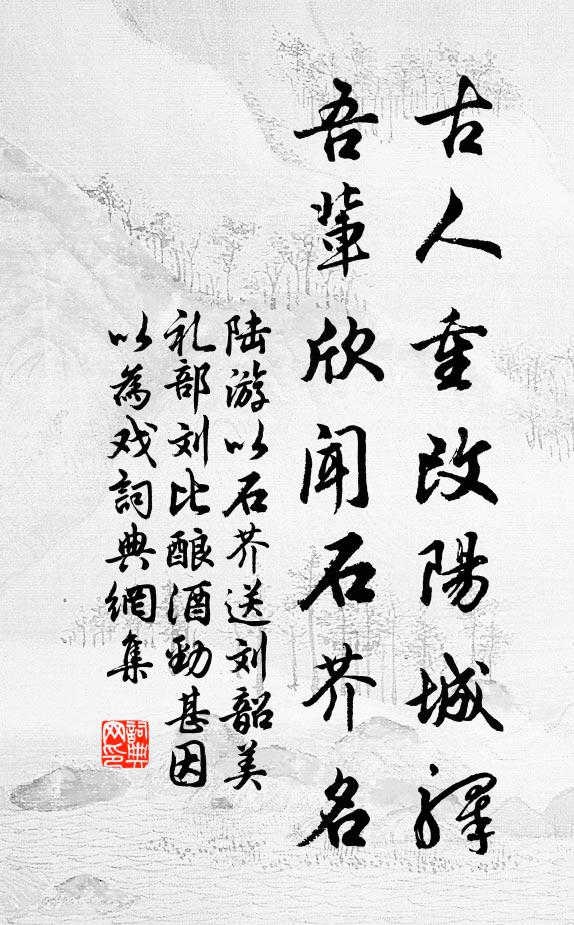 古人重改陽城驛
吾輩欣聞石芥名
陆游以石芥送刘韶美
礼部刘比酿酒劲甚因
以為戏詞典網集
詞典
网印